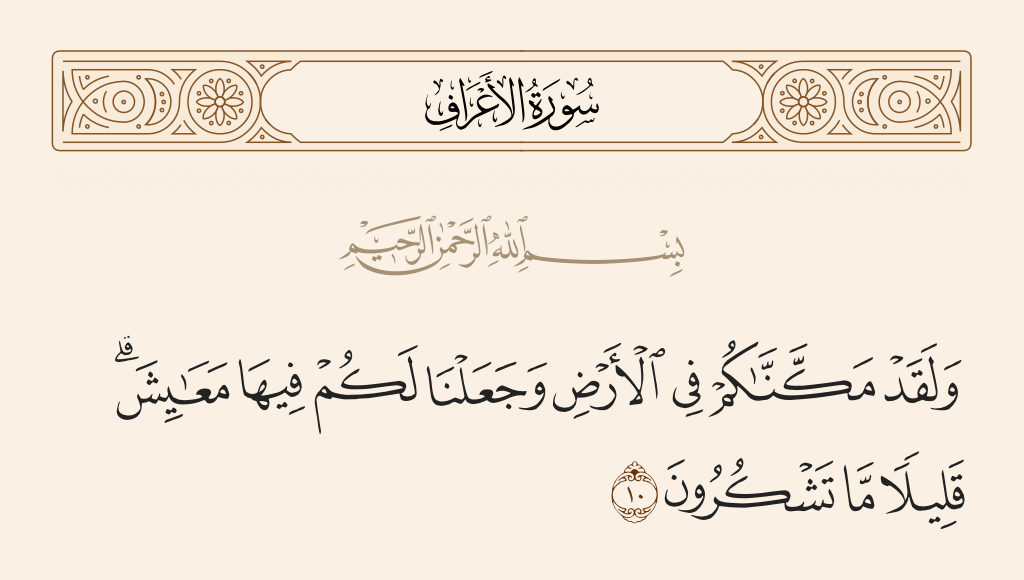 سُورَةُ الأَعْرَافِ
بِسْمِ ٱللَّهِ ٱلرَّحْمَٰنِ ٱلرَّحِيمِ
وَلَقَدْ مَكَّنَّٰكُمْ فِى ٱلْأَرْضِ وَجَعَلْنَا لَكُمْ فِيهَا مَعَٰيِشَ ۗ
قَلِيلًا مَّا تَشْكُرُونَ ١٠